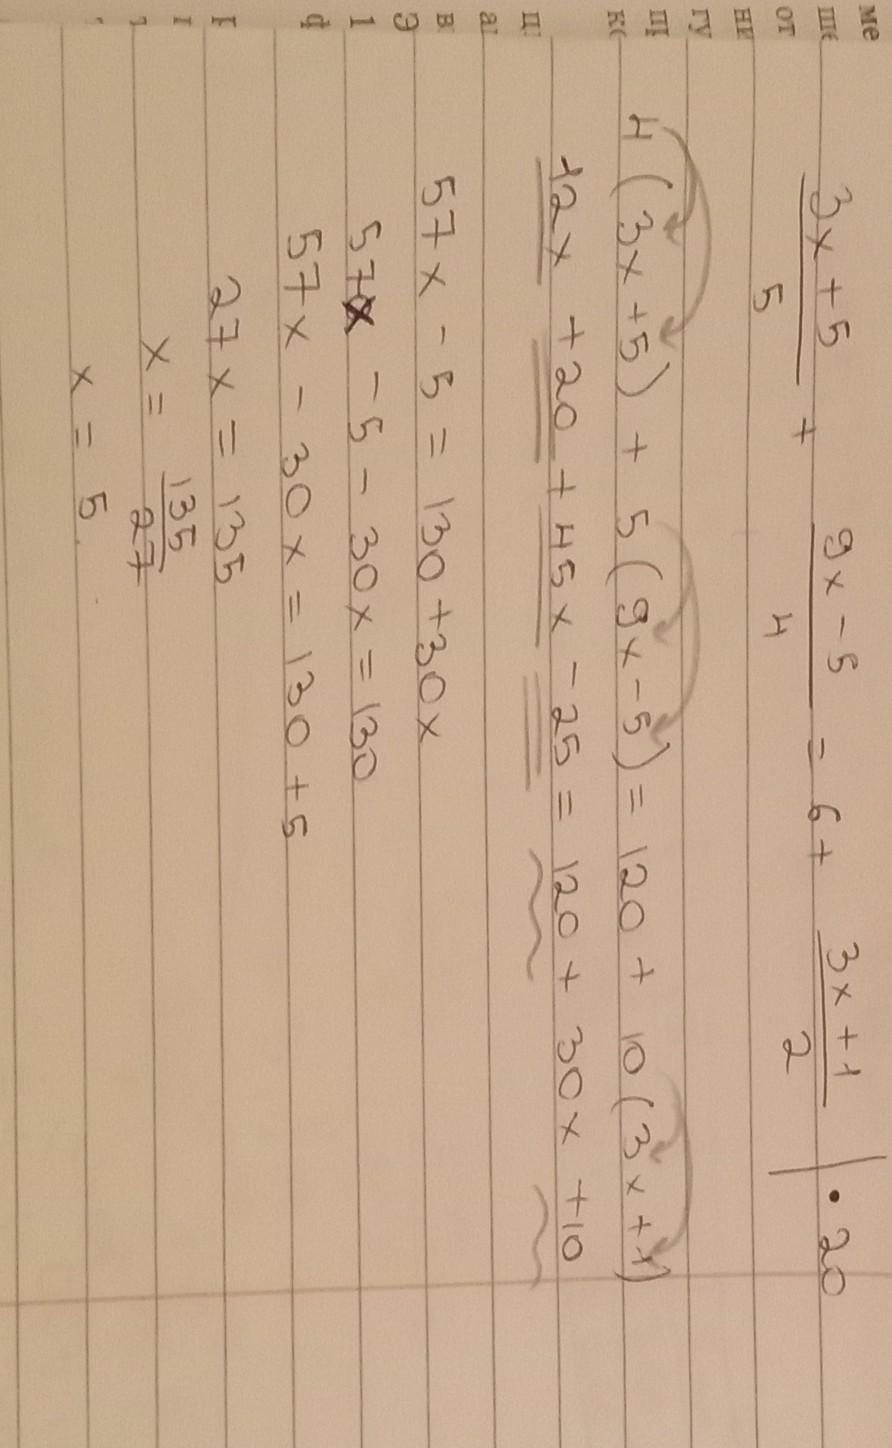 ме
ше
от
ни
гу
щ
кс
3x + 5 / 5 + 9x - 5 / 4 = 6 + 3x + 1 / 2 | • 20
4 (3x + 5) + 5 (9x - 5) = 120 + 10 (3x + 1)
12x + 20 + 45x - 25 = 120 + 30x + 10
57x - 5 = 130 + 30x
57x - 5 - 30x = 130
57x - 30x = 130 + 5
27x = 135
x = 135 / 27
x = 5